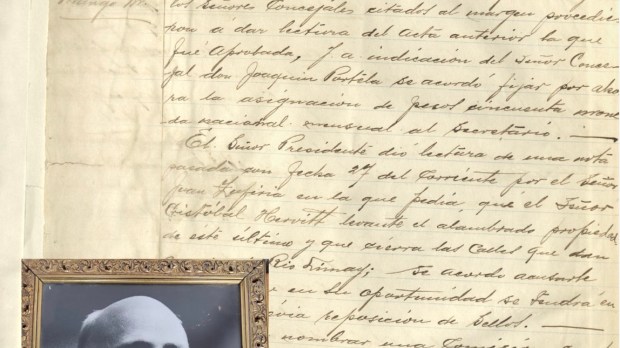 los señores Concejales citados al margen procedie-
ron á dar lectura del Acta anterior la que
fué Aprobada, y a indicación del Señor Conce-
jal don Joaquin Portela se acordó fijar por aho-
ra la asignación de pesos cincuenta mone-
da nacional mensual al Secretario. —
El Señor Presidente dió lectura de una nota
pasada con fecha 27 del corriente por el Señor
en la que pedia, que el Señor
Cristóbal levante el alambrado propiedad
de este último y que cierra las Calles que dan
Rio Limay; se acordó acusarle
en su oportunidad se tendrá en
previa reposición de Sellos. —
nombrar una Comisión